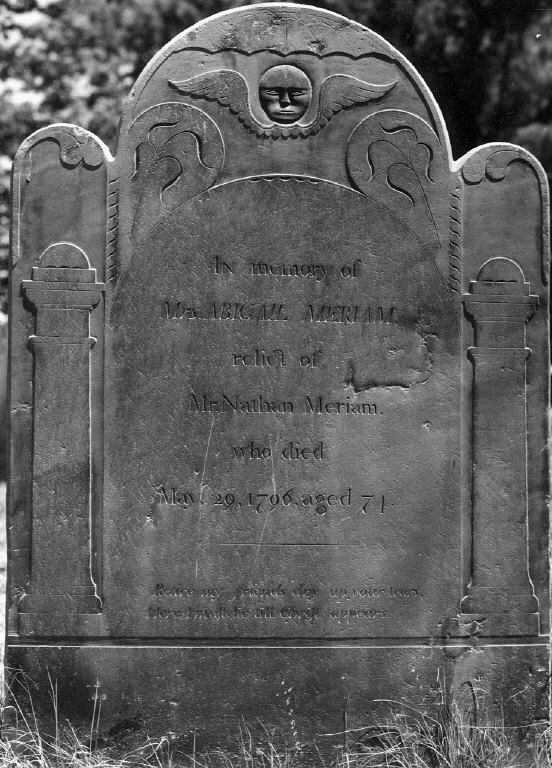 In memory of
Mrs. ABIGAIL MERIAM,
relict of
Mr. Nathan Meriam.
who died
May, 29, 1796, aged 74.
Retire my friends dry up your tears,
Here I must lie till Christ appears.